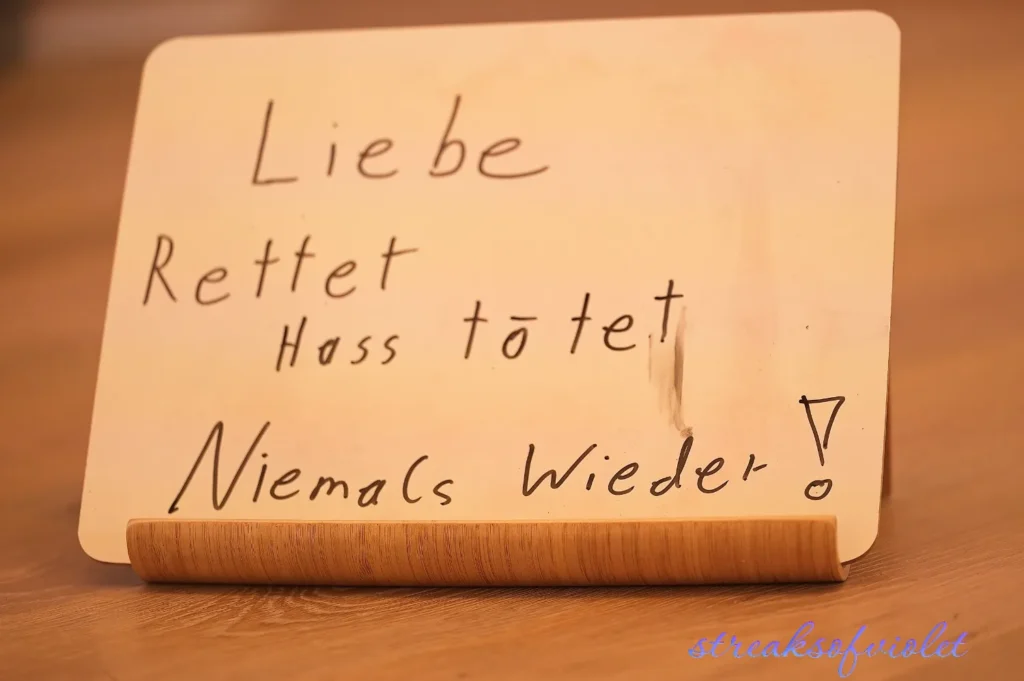 Liebe
Rettet
Hass tōtet
Niemals Wieder!
streaksofviolet